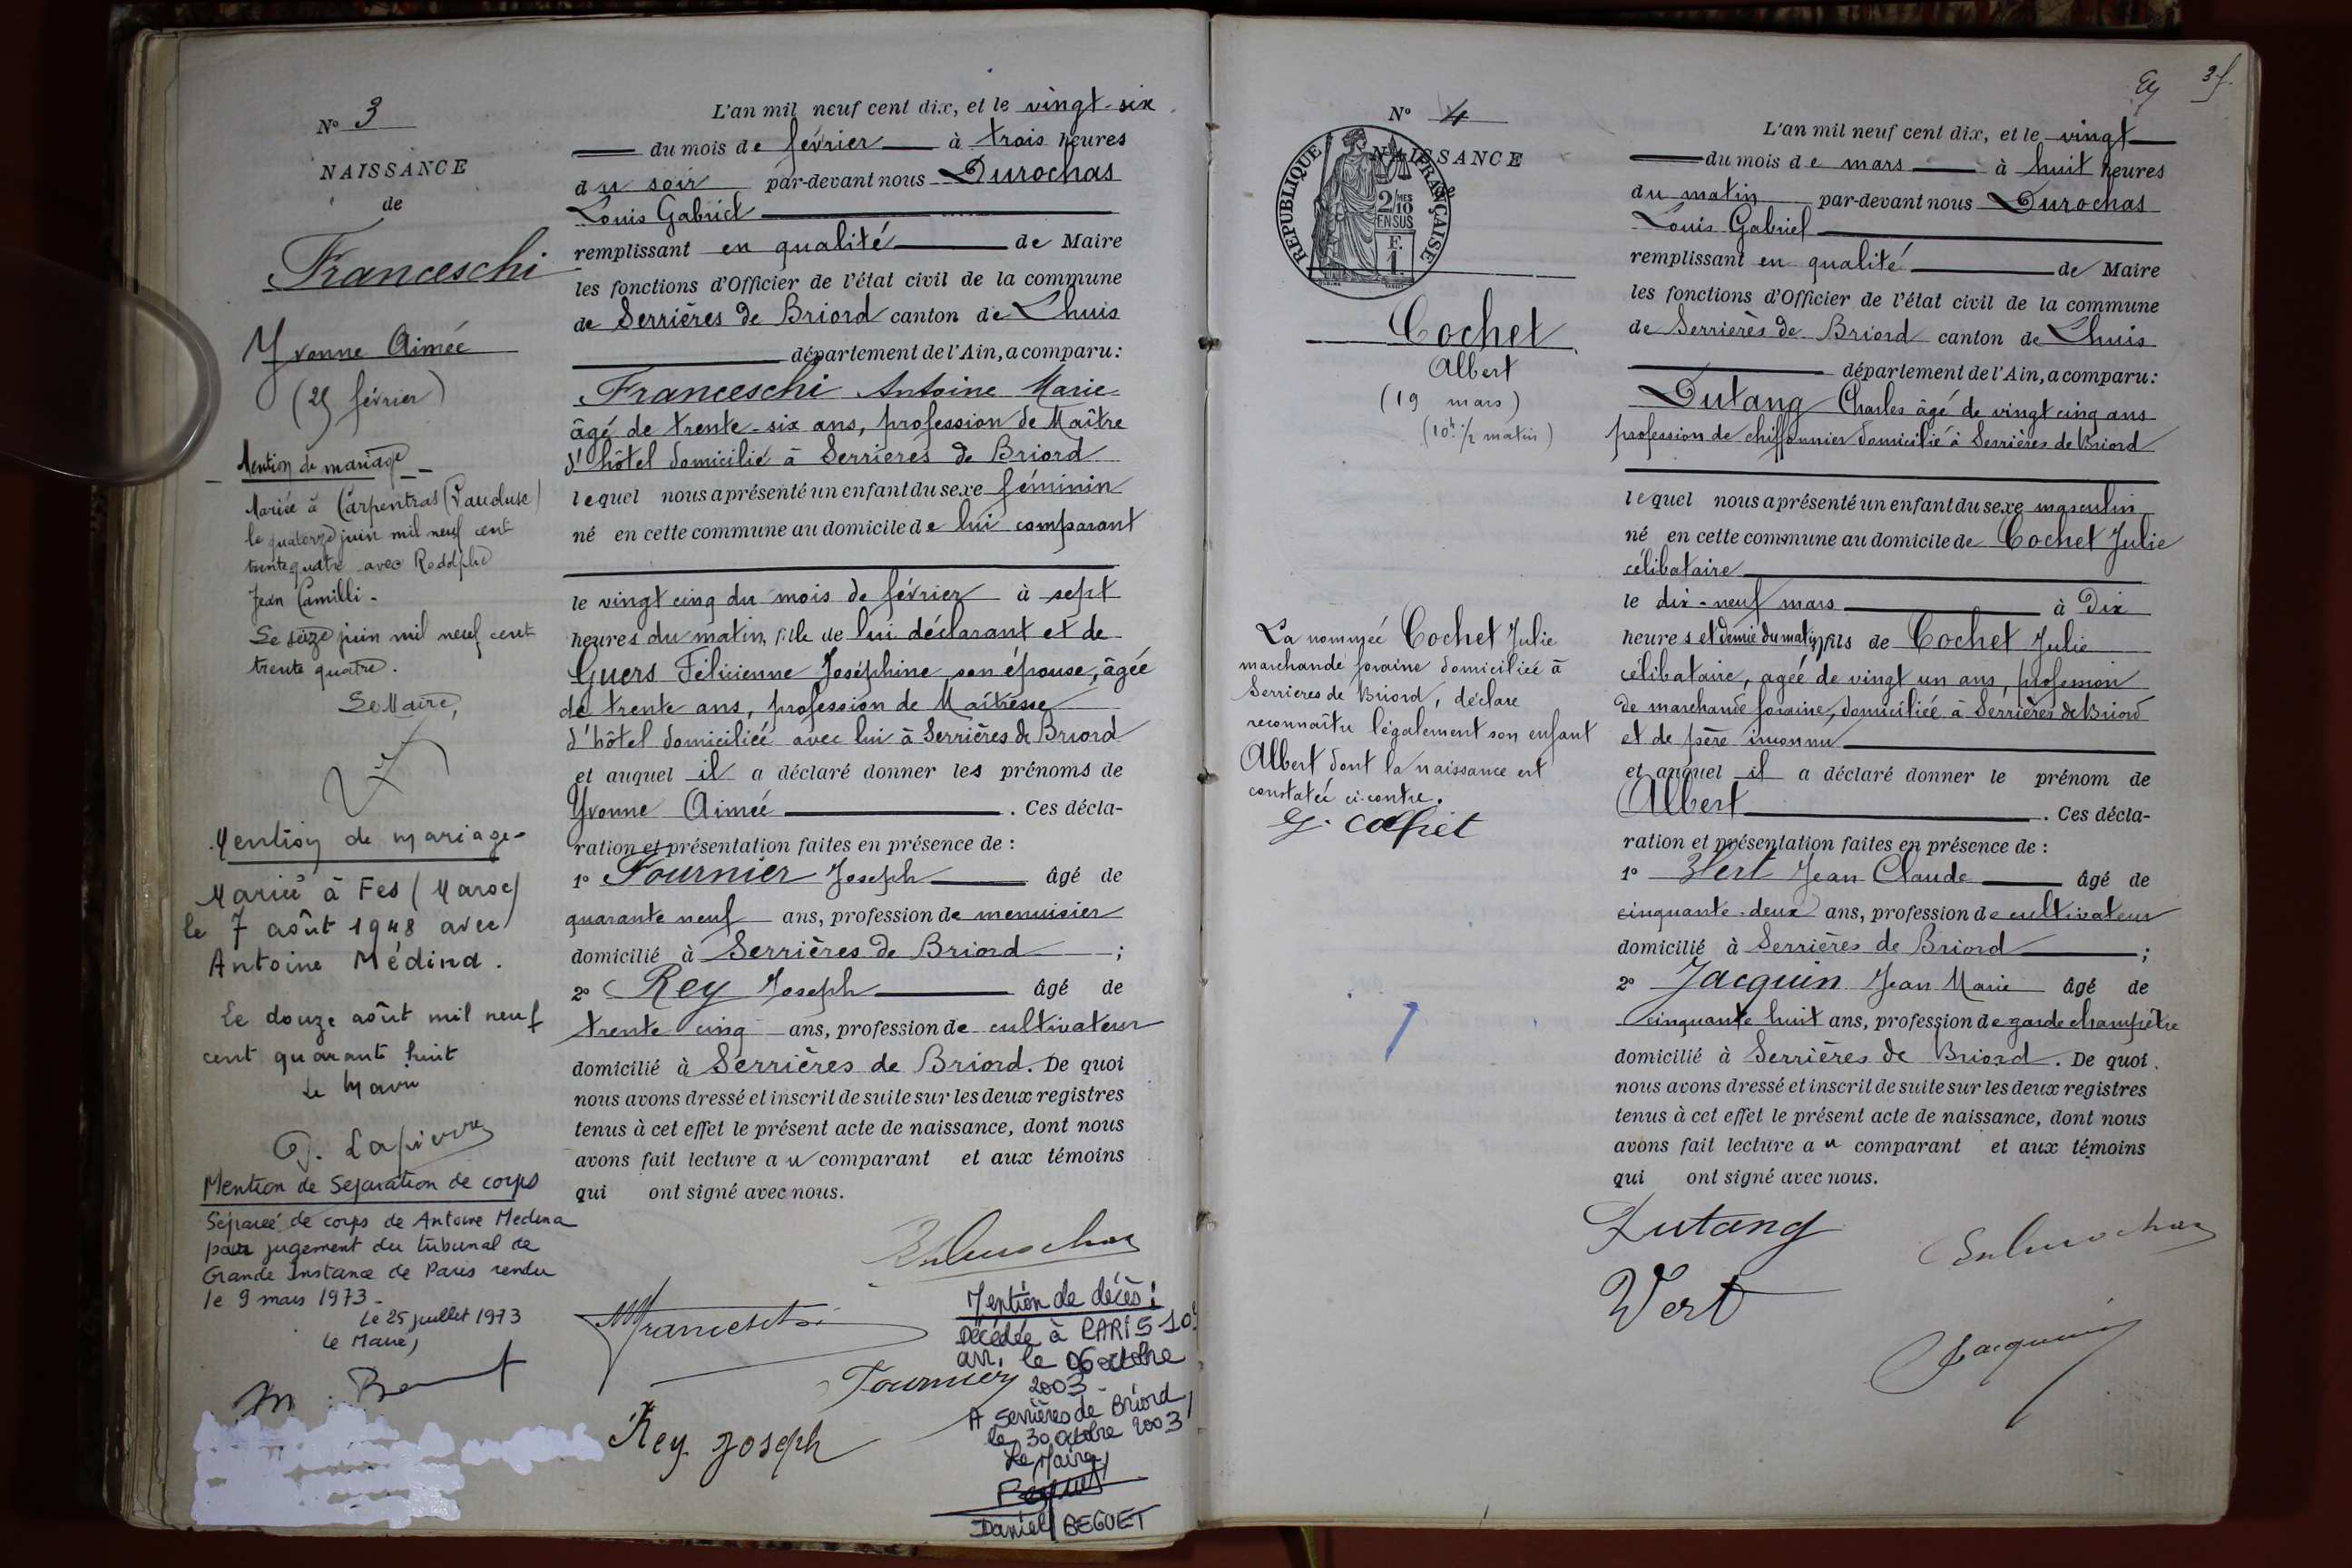 N° 3
NAISSANCE
de
Franceschi
Yvonne Aimée
(25 février)
Mention de mariage
Mariée à Carpentras (Vaucluse)
le quatorze juin mil neuf cent
trente quatre avec Rodolphe
Jean Camilli.
Le seize juin mil neuf cent
trente quatre.
Le Maire,
Mention de mariage
Mariée à Fes (Maroc)
le 7 août 1948 avec
Antoine Médina.
Le douze août mil neuf
cent quarante huit
Le Maire
Lapierre
Mention de Séparation de corps
Séparée de corps de Antoine Medina
par jugement du tribunal de
Grande Instance de Paris rendu
le 9 mars 1973_
Le 25 juillet 1973
Le Maire,
L'an mil neuf cent dix, et le vingt-six
du mois de février à trois heures
du soir par-devant nous Durochas
Louis Gabriel
remplissant en qualité de Maire
les fonctions d'Officier de l'état civil de la commune
de Serrières de Briord canton de Lhuis
département de l'Ain, a comparu:
Franceschi Antoine Marie
âgé de trente-six ans, profession de Maître
d'hôtel domicilié à Serrieres de Briord
lequel nous a présenté un enfant du sexe féminin
né en cette commune au domicile de lui comparant
le vingt cinq du mois de février à sept
heures du matin, fille de lui déclarant et de
Guers Félicienne Joséphine son épouse, âgée
de trente ans, profession de Maîtresse
d'hôtel domiciliée avec lui à Serrières de Briord
et auquel il a déclaré donner les prénoms de
Yvonne Aimée. Ces décla-
ration et présentation faites en présence de :
1° Fournier Joseph âgé de
quarante neuf ans, profession de menuisier
domicilié à Serrières de Briord ;
2° Rey Joseph âgé de
trente cinq ans, profession de cultivateur
domicilié à Serrières de Briord. De quoi
nous avons dressé et inscrit de suite sur les deux registres
tenus à cet effet le présent acte de naissance, dont nous
avons fait lecture au comparant et aux témoins
qui ont signé avec nous.
Durochas
Franceschi
Fournier
Rey Joseph
Mention de décès :
Décédée à PARIS 10e
arr. le 06 octobre
2003 -
A Serrières de Briord,
le 30 octobre 2003
Le Maire,
Daniel BEGUET
3 f.
N° 4
NAISSANCE
REPUBLIQUE FRANÇAISE
2/10 MES
EN SUS
F.
1.
Cochet
Albert
(19 mars)
(10h 1/2 matin)
La nommée Cochet Julie
marchande foraine domiciliée à
Serrieres de Briord, déclare
reconnaître légalement son enfant
Albert dont la naissance est
constatée ci-contre.
L'an mil neuf cent dix, et le vingt
du mois de mars à huit heures
du matin par-devant nous Durochas
Louis Gabriel
remplissant en qualité de Maire
les fonctions d'Officier de l'état civil de la commune
de Serrierès de Briord canton de Lhuis
département de l'Ain, a comparu:
Dutang Charles âgé de vingt cinq ans
profession de chiffonnier domicilié à Serrières de Briord
lequel nous a présenté un enfant du sexe masculin
né en cette commune au domicile de Cochet Julie
célibataire
le dix-neuf mars à Dix
heures et demie du matin, fils de Cochet Julie
célibataire, agée de vingt un ans, profession
de marchande foraine, domiciliée à Serrières de Briord
et de père inconnu
et auquel il a déclaré donner le prénom de
Albert. Ces décla-
ration et présentation faites en présence de :
1° Vert Jean Claude âgé de
cinquante-deux ans, profession de cultivateur
domicilié à Serrières de Briord ;
2° Jacquin Jean Marie âgé de
cinquante huit ans, profession de garde champêtre
domicilié à Serrières de Briord. De quoi
nous avons dressé et inscrit de suite sur les deux registres
tenus à cet effet le présent acte de naissance, dont nous
avons fait lecture au comparant et aux témoins
qui ont signé avec nous.
Dutang
Durochas
Vert
Jacquin